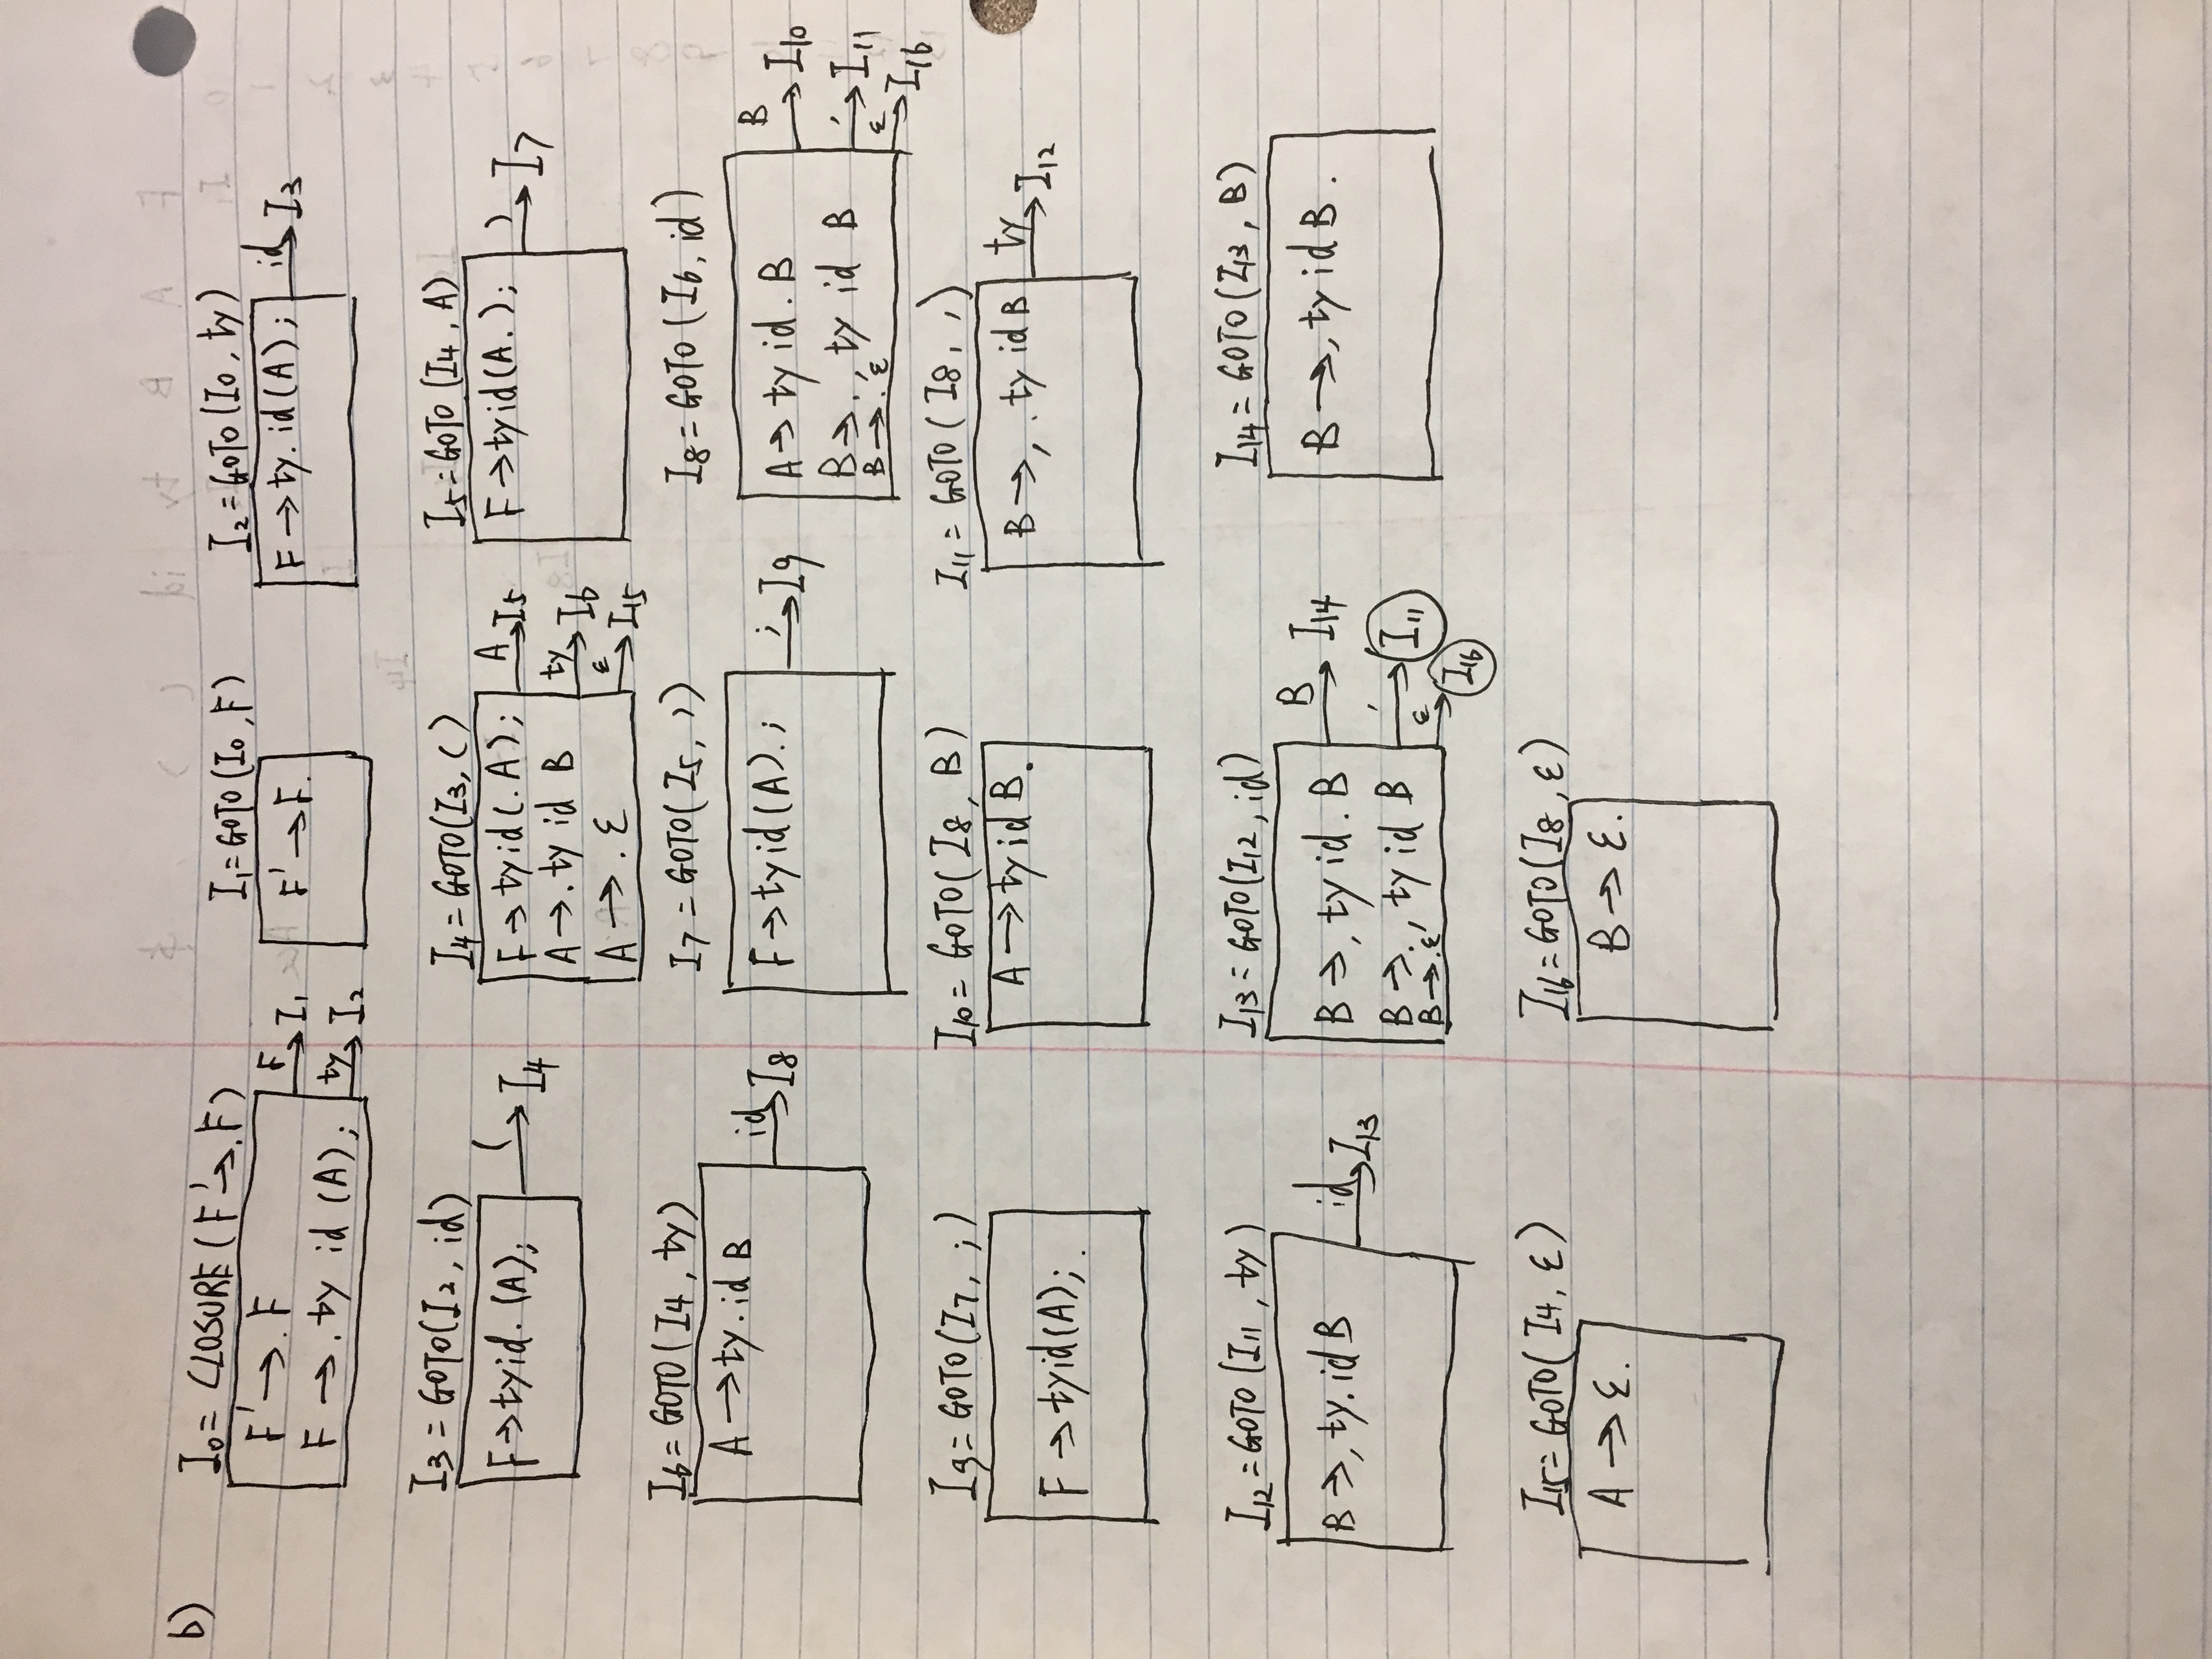 b)
I0 = CLOSURE (F' → . F)
F' → . F
F → I1
F → . ty id (A) ;
ty → I2
I1 = GOTO (I0, F)
F' → F.
I2 = GOTO (I0, ty)
F → ty. id (A) ;
id → I3
I3 = GOTO (I2, id)
F → ty id. (A) ;
( → I4
I4 = GOTO (I3, ( )
F → ty id (. A) ;
A → I5
A → . ty id B
ty → I6
A → . ε
ε → I15
I5 = GOTO (I4, A)
F → ty id (A. ) ;
) → I7
I6 = GOTO (I4, ty)
A → ty. id B
id → I8
I7 = GOTO (I5, ) )
F → ty id (A) . ;
; → I9
I8 = GOTO (I6, id)
A → ty id . B
B → I10
B → . , ty id B
, → I11
B → . ε
ε → I16
I9 = GOTO (I7, ; )
F → ty id (A) ; .
I10 = GOTO (I8, B)
A → ty id B.
I11 = GOTO (I8, , )
B → , . ty id B
ty → I12
I12 = GOTO (I11, ty)
B → , ty. id B
id → I13
I13 = GOTO (I12, id)
B → , ty id . B
B → I14
B → . , ty id B
, → I11
B → . ε
ε → I16
I14 = GOTO (I13, B)
B → , ty id B .
I15 = GOTO (I4, ε)
A → ε.
I16 = GOTO (I8, ε)
B → ε.